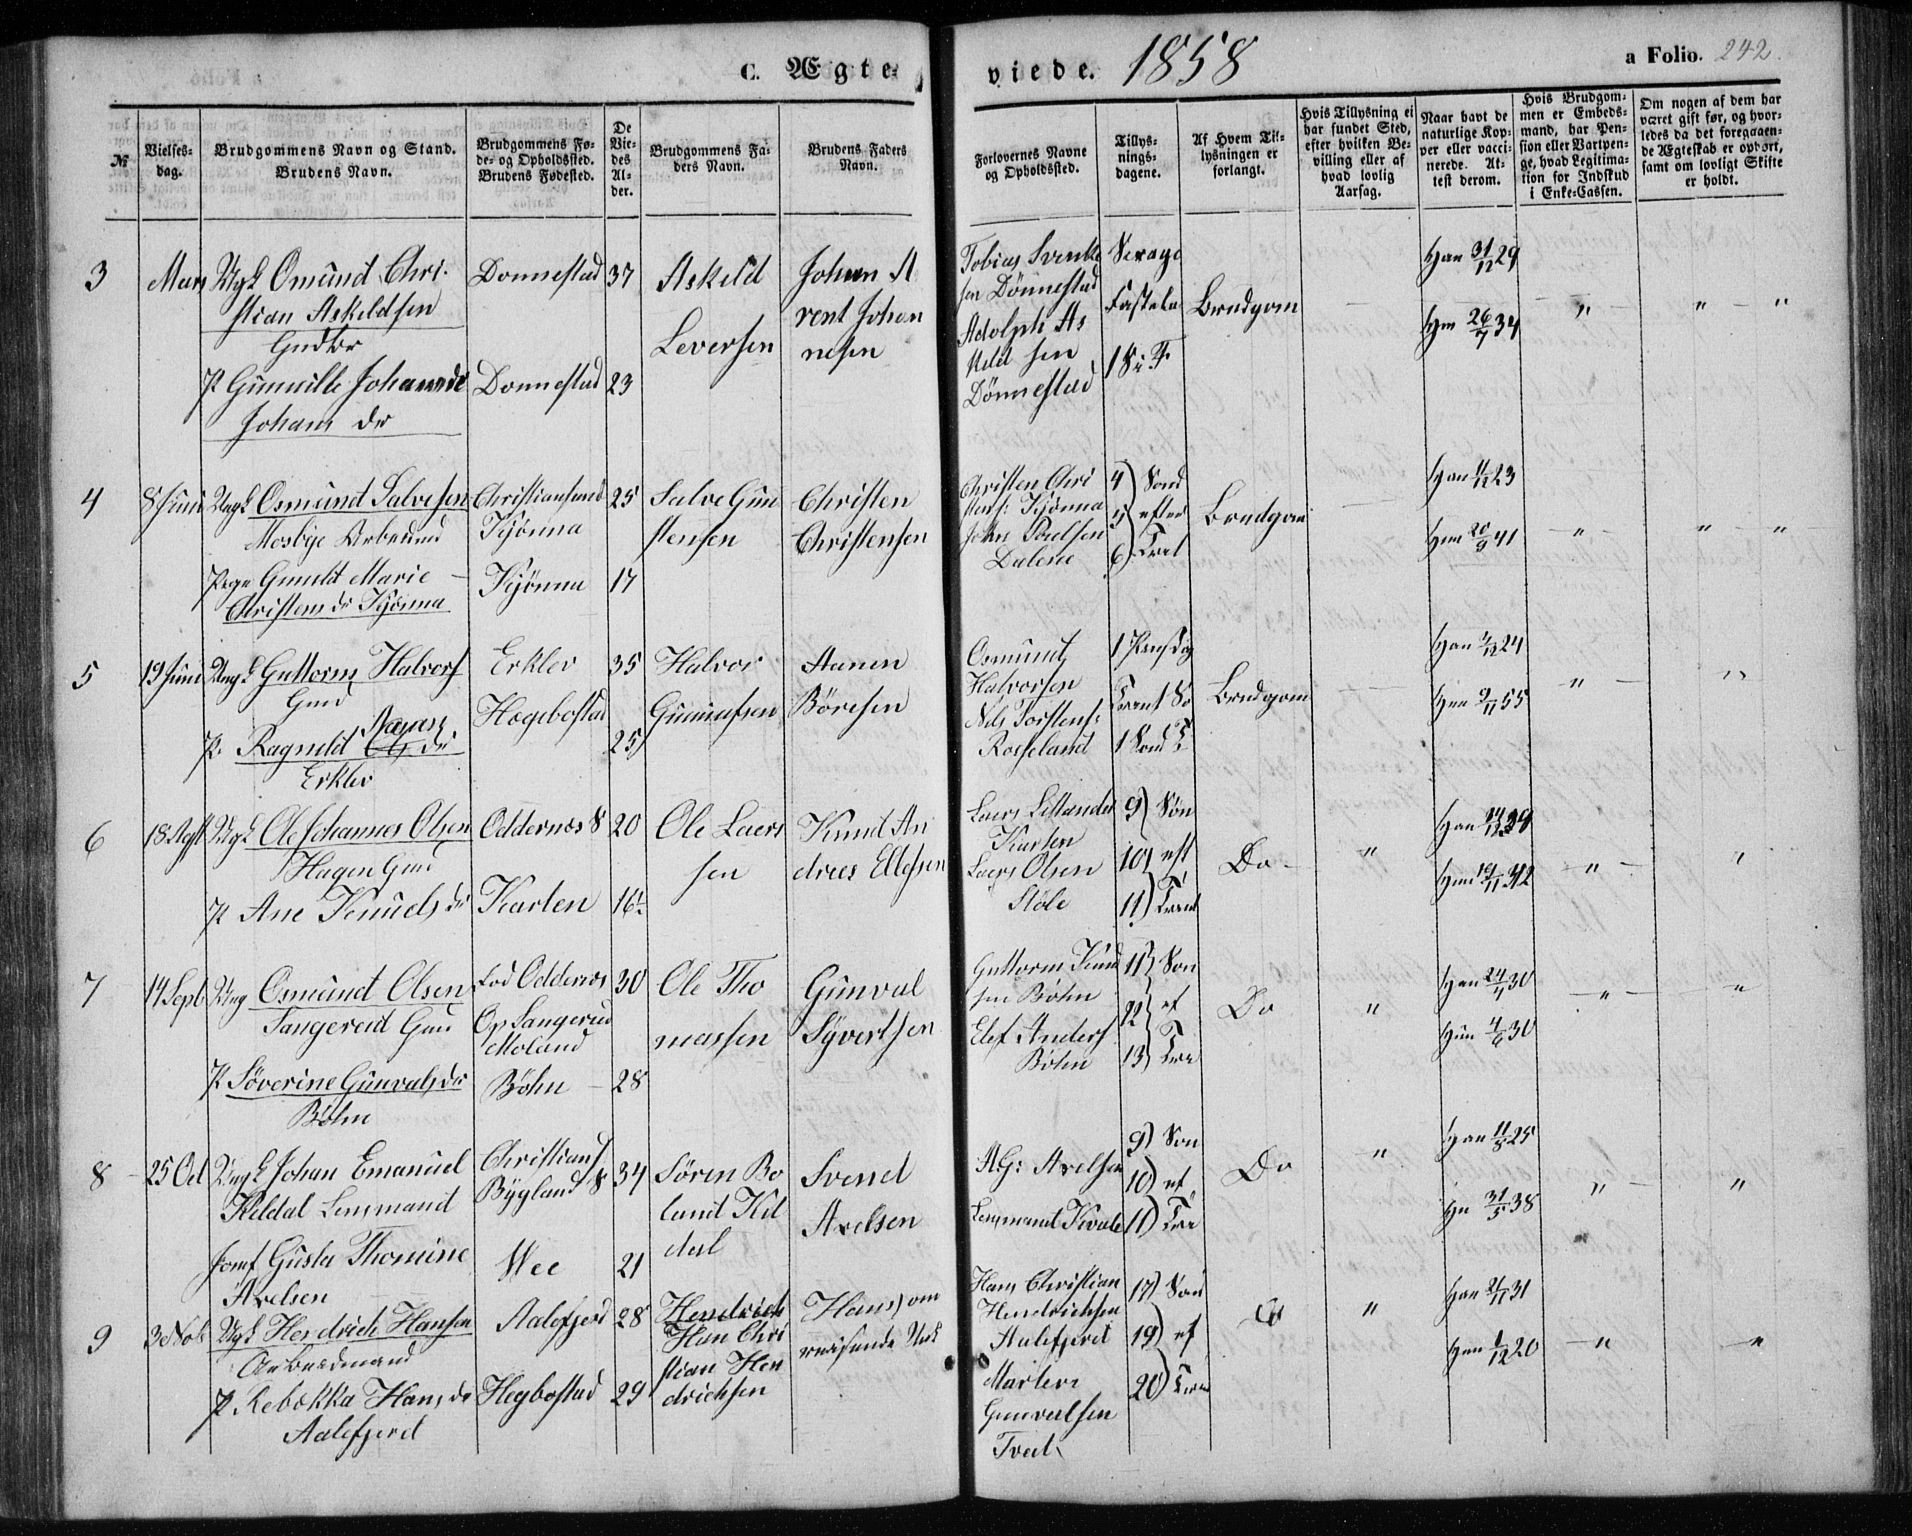 C. Ægte-
viede. 1858
a Folio. 242.
№
Vielses-
dag.
Brudgommens Navn og Stand.
Brudens Navn.
Brudgommens Fø-
de- og Opholdssted.
Brudens Fødested.
De
Vie-
des
Al-
der.
Brudgommens Fa-
ders Navn.
Brudens Faders
Navn.
Forlovernes Navne
og Opholdssted.
Tillys-
nings-
dagene.
Af Hvem Til-
lysningen er
forlangt.
Hvis Tillysning ei
har fundet Sted,
efter hvilken Be-
villing eller af
hvad lovlig
Aarsag.
Naar havt de
naturlige Kop-
per eller vacci-
nerede. At-
test derom.
Hvis Brudgom-
men er Embeds-
mand, har Pen-
sion eller Vartpen-
ge, hvad Legitima-
tion for Indskud
i Enke-Cassen.
Om nogen af dem har
været gift før, og hvor-
ledes da det foregaaen-
de Ægteskab er ophørt,
samt om lovligt Skifte
er holdt.
3
Mars
Ungk Omund Chri-
stian Askeldsen
Gudbr
P Gunnille Johanne
Johans dr
Donnestad
Donnestad
37
23
Askeld
Leversen
Johan A
rent Johan
nesen
Tobias Svenke
sen Dønnestad
Adolph As
keld sen
Dønnestad
Fastela
1 S i F
Brudgom
Han 31/12 29
Hun 26/7 34
" - "
4
8 Juni
Ungk Osmund Salvesen
Mosbye Arbeidsmd
Pige Gunild Marie
Christens dr Kjønna
Christiansand
Kjønna
Kjønna
25
17
Salve Gun
stensen
Christen
Christensen
Christen Chri
stens: Kjønna
John Poulsen
Dalene
4) Sond
5) efter
6) Tret
Brudgom
Han 11/12 23
Hun 20/9 41
" " "
5
19 Juni
Ungk Guttorm Halvors
Gmd
P. Ragnild Aanens dr
Erklev
Erklev
Hægebostad
35
25
Halvor
Gunnufsen
Aanen
Børesen
Osmund
Halvorsen
Nils Torstens:
Rosseland
1 Pindsdg
Trent So
1 Sond T
Brudgom
Han 3/12 24
Hun 9/11 55
" "
6
18 Agst
Ungk Ole Johannes Olsen
Hagen Gmd
P Ane Knuds dr
Oddernæs S
Karten
20
16½
Ole Laers
sen
Knud An
dreas Ellefsen
Laers
Karten
Laers Olsen
Støle
9) Søn
10) eft
11) Trent
Do -
"
Han 14/12 39
Hun 19/11 42
" "
7
14 Sept
Ung Osmund Olsen
Sangereid Gmd
P Søverine Gunvals dr
Bøhn
Fød Oddernæs
Op Sangereid
Moland
Bøhn
30
28
Ole Tho
massen
Gunval
Syvertsen
Guttorm Knud
sen Bøhn
Elef Anders
Bøhn
11) Son
12) ef
13) Tre
Do
"
Han 24/7 30
Hun 4/6 30
" "
8
25 Oct
Ungk Johan Emanuel
Kildal Lensmand
Jomf Gusta Thomine
Axelsen
Christians
Bygland S
Wee
34
21
Søren Bo
lund Kil
dal
Svend
Axelsen
AG: Axelsen
Lensmand Kvale
9) Son
10) ef
11) Tre
Do
"
Han 11/8 25
Hu 31/5 38
" "
9
30 Nov
Ungk Hendrich Hansen
Arbeidmand
P Rebekka Hans dr
Aalefjerd
Aalefjerd
Hegbostad
28
29
Hendrich
Han Chri
stian Hen
drichsen
Hans, om
reisende
Hans Christian
Hendrichsen
Aalefjerd
Marten
Gunvaldsen
Tveit
17) Son
19) ef
20) Tre
Do
"
Han 2/11 31
Hun 1/12 20
" "